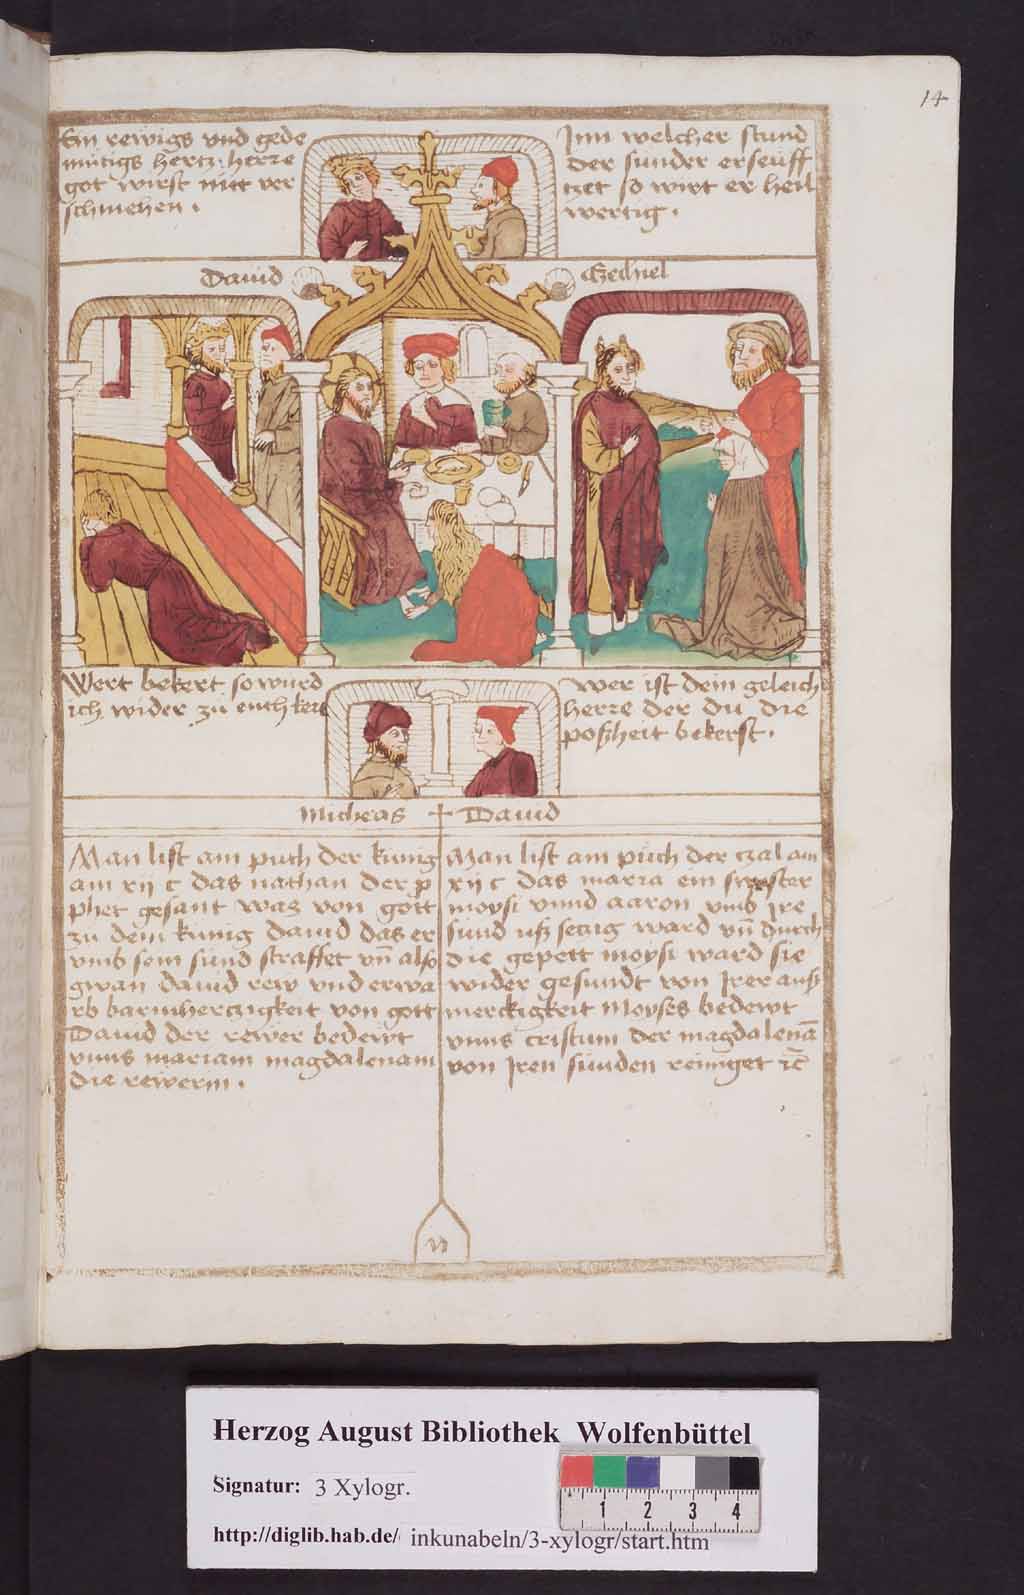 14
Ein rewigs vnd gede
mütigs hertz herre
got wirst nitt ver
schmehen .
Inn welcher stund
der sunder erseüff
tzet so wirt er heil
wertig .
Dauid
Ezechiel
Wert bekert so wurd
ich wider zu euch kere
Wer ist dein geleich
herre der du die
poßheit bekerst .
Micheas + Dauid
Man list am puch der kunig
am xij c das nathan der p
phet gesant waz von gott
zu dem kunig dauid das er
vmb sein sünd straffet vn̄ also
gwan dauid rew vnd erwa
rb barmherczigkeit von gott
Dauid der rewer bedewt
vnns mariam magdalenam
die rewerin .
Man list am püch der czal am
xij c das maria ein swester
moysi vnnd aaron vmb Ire
sünd ward vn̄ durch
die gepett moysi ward sie
wider gesundt von Irer auß
merckigkeit Moyses bedewt
vnns cristum der magdalenā
von Iren sünden reiniget
Herzog August Bibliothek Wolfenbüttel
Signatur: 3 Xylogr.
1 2 3 4
http://diglib.hab.de/ inkunabeln/3-xylogr/start.htm